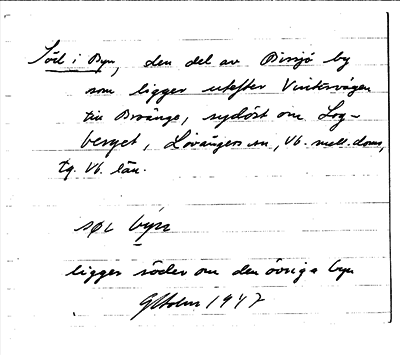 Söd i Byn, den del av Bissjö by
som ligger utefter Vintervägen
till Brvånge, sydöst om Log-
berget, Lövångers sn, Vb. mell. doms,
tg. Vb. län.
søɩ byn
ligger söder om den övriga byn
G Holm 1947